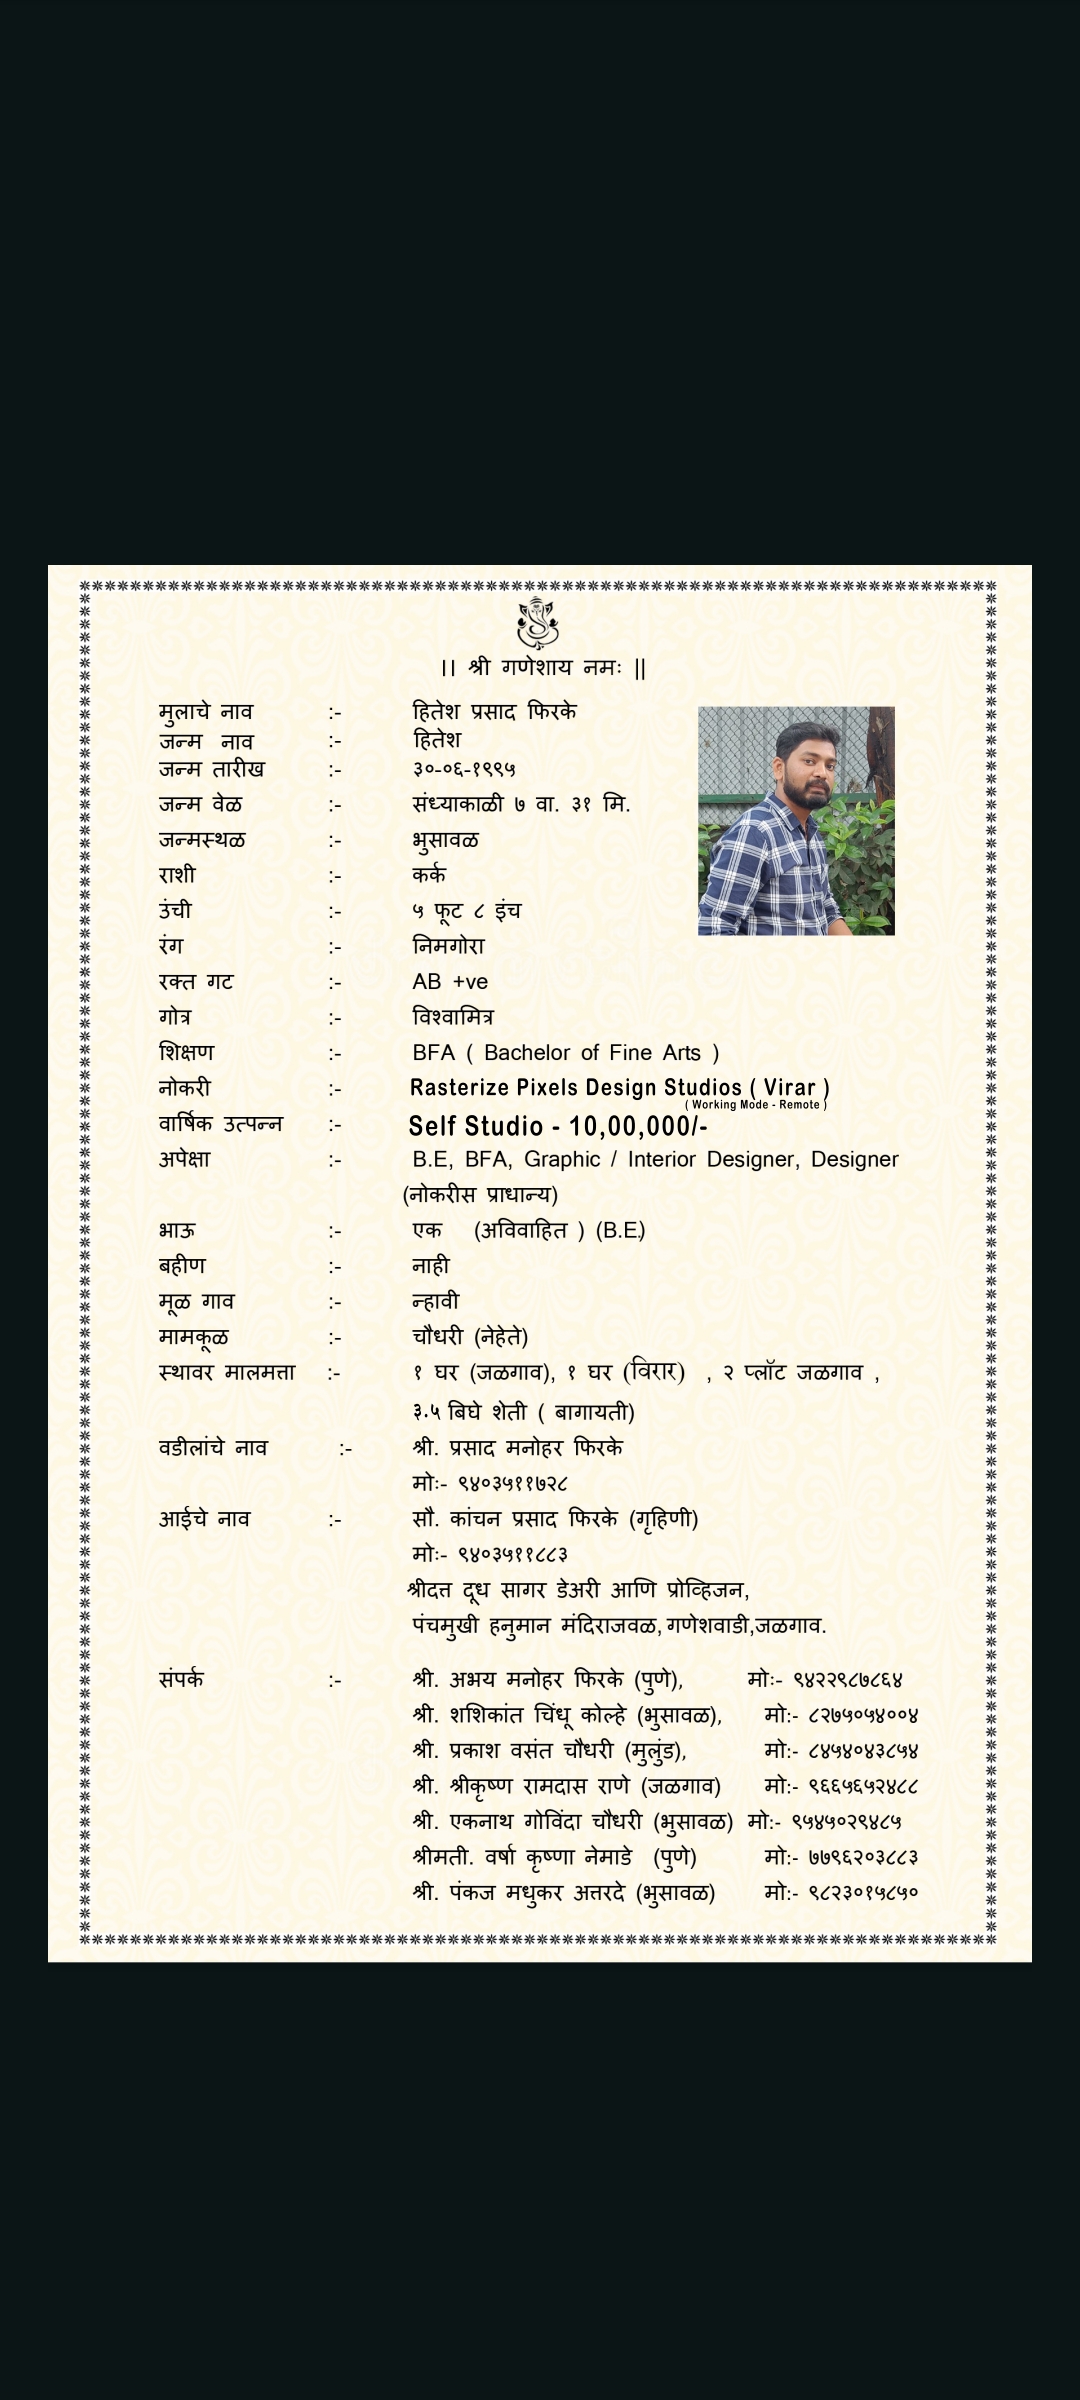 ।। श्री गणेशाय नमः ||
मुलाचे नाव :- हितेश प्रसाद फिरके
जन्म नाव :- हितेश
जन्म तारीख :- ३०-०६-१९९५
जन्म वेळ :- संध्याकाळी ७ वा. ३१ मि.
जन्मस्थळ :- भुसावळ
राशी :- कर्क
उंची :- ५ फूट ८ इंच
रंग :- निमगोरा
रक्त गट :- AB +ve
गोत्र :- विश्वामित्र
शिक्षण :- BFA ( Bachelor of Fine Arts )
नोकरी :- Rasterize Pixels Design Studios ( Virar )
( Working Mode - Remote )
वार्षिक उत्पन्न :- Self Studio - 10,00,000/-
अपेक्षा :- B.E, BFA, Graphic / Interior Designer, Designer
(नोकरीस प्राधान्य)
भाऊ :- एक (अविवाहित ) (B.E.)
बहीण :- नाही
मूळ गाव :- न्हावी
मामकूळ :- चौधरी (नेहेते)
स्थावर मालमत्ता :- १ घर (जळगाव), १ घर (विरार) , २ प्लॉट जळगाव ,
३.५ बिघे शेती ( बागायती)
वडीलांचे नाव :- श्री. प्रसाद मनोहर फिरके
मोः- ९४०३५११७२८
आईचे नाव :- सौ. कांचन प्रसाद फिरके (गृहिणी)
मोः- ९४०३५११८८३
श्रीदत्त दूध सागर डेअरी आणि प्रोव्हिजन,
पंचमुखी हनुमान मंदिराजवळ, गणेशवाडी,जळगाव.
संपर्क :- श्री. अभय मनोहर फिरके (पुणे), मोः- ९४२२९८७८६४
श्री. शशिकांत चिंधू कोल्हे (भुसावळ), मो:- ८२७५०५४००४
श्री. प्रकाश वसंत चौधरी (मुलुंड), मो:- ८४५४०४३८५४
श्री. श्रीकृष्ण रामदास राणे (जळगाव) मो:- ९६६५६५२४८८
श्री. एकनाथ गोविंदा चौधरी (भुसावळ) मो:- ९५४५०२९४८५
श्रीमती. वर्षा कृष्णा नेमाडे (पुणे) मो:- ७७९६२०३८८३
श्री. पंकज मधुकर अत्तरदे (भुसावळ) मो:- ९८२३०१५८५०